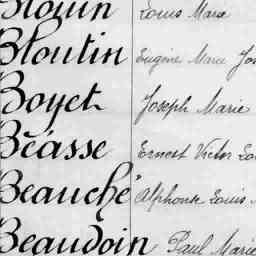 Blouin Louis Marie
Bloutin Eugène Marie
Boyet Joseph Marie
Béasse Ernest Victor
Beauché Alphonse Louis
Beaudoin Paul Marie